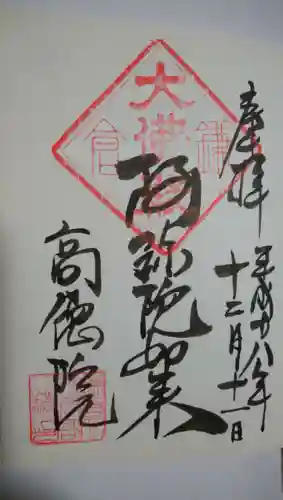 奉拝
平成廿八年
十二月十一日
阿弥陀如来
高徳院
鎌倉
大佛殿